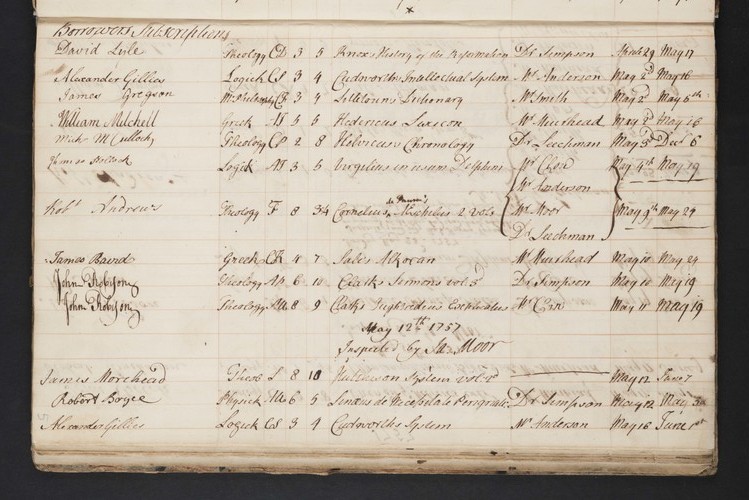 Borrowers Subscriptions
David Lyle Theology CD 3 5 Knox's History of the Reformation Dr Simpson April 29 May 17
Alexander Gillies Logick CS 3 4 Cudworths Intellectual System Mr Anderson May 2d May 16
James Gregson 3 4 Littletons Dictionary Mr Smith May 2d May 6th
William Mitchell Greek 5 5 Hedericus Lexicon Mr Muirhead May 3d May 26
McCulloch Theology CP 2 8 Helvicus's Chronology Dr Leechman May 3d Decr 6
Logick 3 5 Virgilius in usum Delphini Mr Clow May 4th May 19
Mr Anderson
Robt Andrews Theology F 8 3/4 Cornelius 2 vols Mr Moor May 9th May 24
Dr Leechman
James Baird Greek 4 7 Sales Alkoran Mr Muirhead May 10 May 24
John Robison Theology 6 10 Clarks Sermons vol. 3d Dr Simpson May 10 May 19
John Robison Theology 8 9 Clarks Mr Clow May 11 May 19
May 12th 1757
Inspected by Ja: Moor
James Morehead Theol L 8 10 Hutcheson System vol. May 12 June 7
Robert Boyce Physick 6 5 Dr Simpson May 12 May
Alexander Gillies Logick CS 3 4 Cudworths System Mr Anderson May 16 June 1st